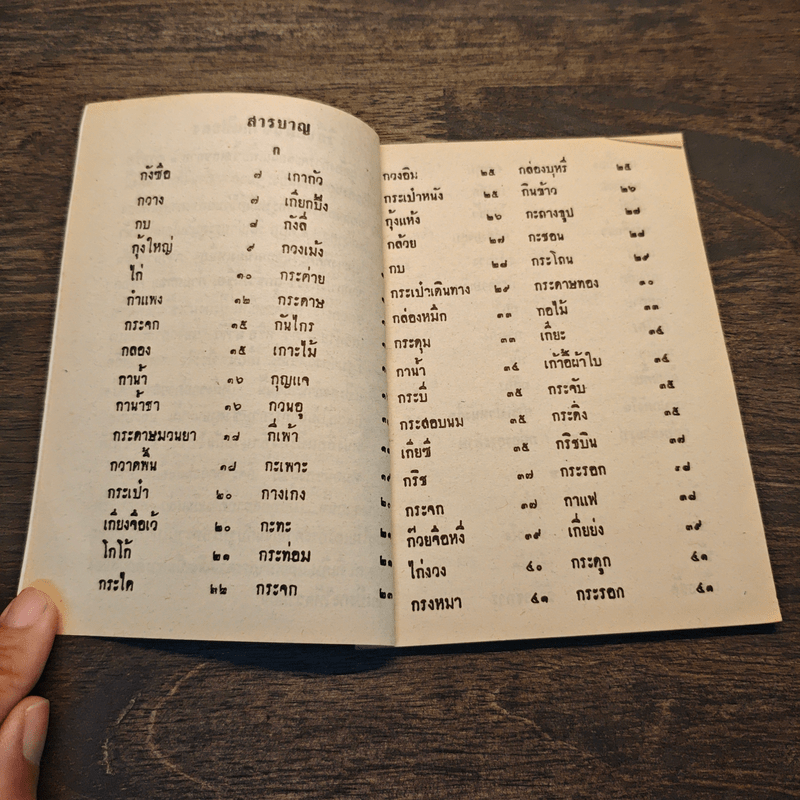 สารบาญ
ก
กังซือ ๗ เกากัว
กวาง ๗ เกี่ยกบึง
กบ ๘ กังลี่
กุ้งใหญ่ ๙ กวงเม้ง
ไก่ ๑๐ กระต่าย
กำแพง ๑๒ กระดาษ
กระจก ๑๕ กันไกร
กลอง ๑๕ เกาะไม้
กาน้ำ ๑๖ กุญแจ
กาน้ำชา ๑๖ กวนอู
กระดาษมวนยา ๑๘ กี่เพ้า
กวาดพื้น ๑๘ กะเพาะ
กระเป๋า ๒๐ กางเกง
เกี่ยงจือเว้ ๒๐ กะทะ
โกโก้ ๒๑ กระท่อม ๒๑
กระได ๒๒ กระจก ๒๓
กวงอิม ๒๕ กล่องบุหรี่ ๒๕
กระเป๋าหนัง ๒๕ กินข้าว ๒๖
กุ้งแห้ง ๒๖ กะถางธูป ๒๘
กล้วย ๒๗ กะชอน ๒๘
กบ ๒๘ กระโถน ๒๙
กระเป๋าเดินทาง ๒๙ กระดาษทอง ๓๐
กล่องหมึก ๓๓ กอไม้ ๓๓
กระดุม ๓๓ เกี๊ยะ ๓๔
กาน้ำ ๓๔ เก้าอี้ผ้าใบ ๓๔
กระบี่ ๓๕ กระจับ ๓๕
กระสอบนม ๓๕ กระดิ่ง ๓๕
เกี่ยซี่ ๓๕ กริชบิน ๓๗
กริช ๓๗ กระรอก ๓๘
กระจก ๓๗ กาแฟ ๓๘
ก๊วยจือหงี ๓๙ เกี่ยย่ง ๓๙
ไก่งวง ๔๐ กระดูก ๔๑
กรงหมา ๔๑ กระรอก ๔๑